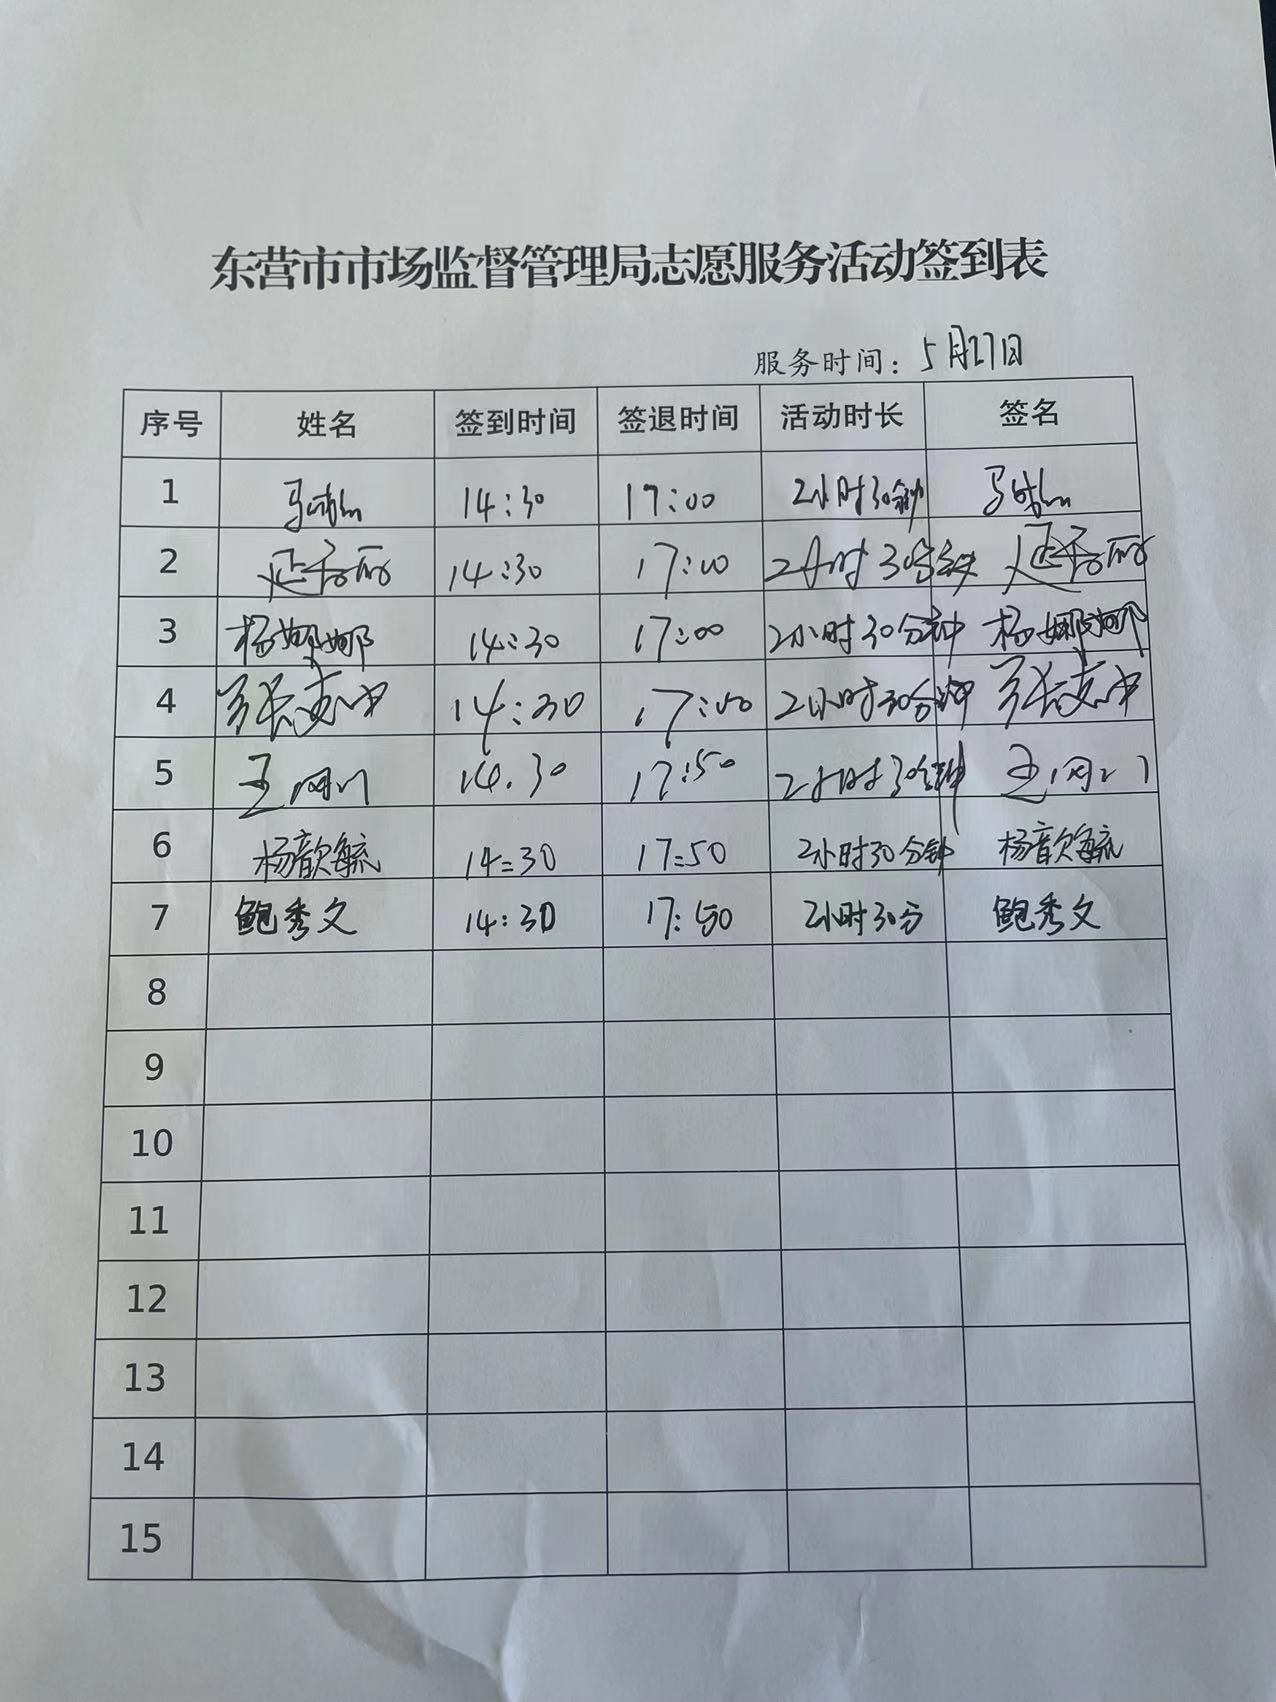 东营市市场监督管理局志愿服务活动签到表
服务时间：5月27日
序号 姓名 签到时间 签退时间 活动时长 签名
1 14:30 17:00 2小时30分钟
2 14:30 17:00 2小时30分钟
3 杨娜娜 14:30 17:00 2小时30分钟 杨娜娜
4 14:30 17:00 2小时30分钟
5 14.30 17:50 2小时30分钟
6 杨歆毓 14:30 17:50 2小时30分钟 杨歆毓
7 鲍秀文 14:30 17:50 2小时30分 鲍秀文
8
9
10
11
12
13
14
15